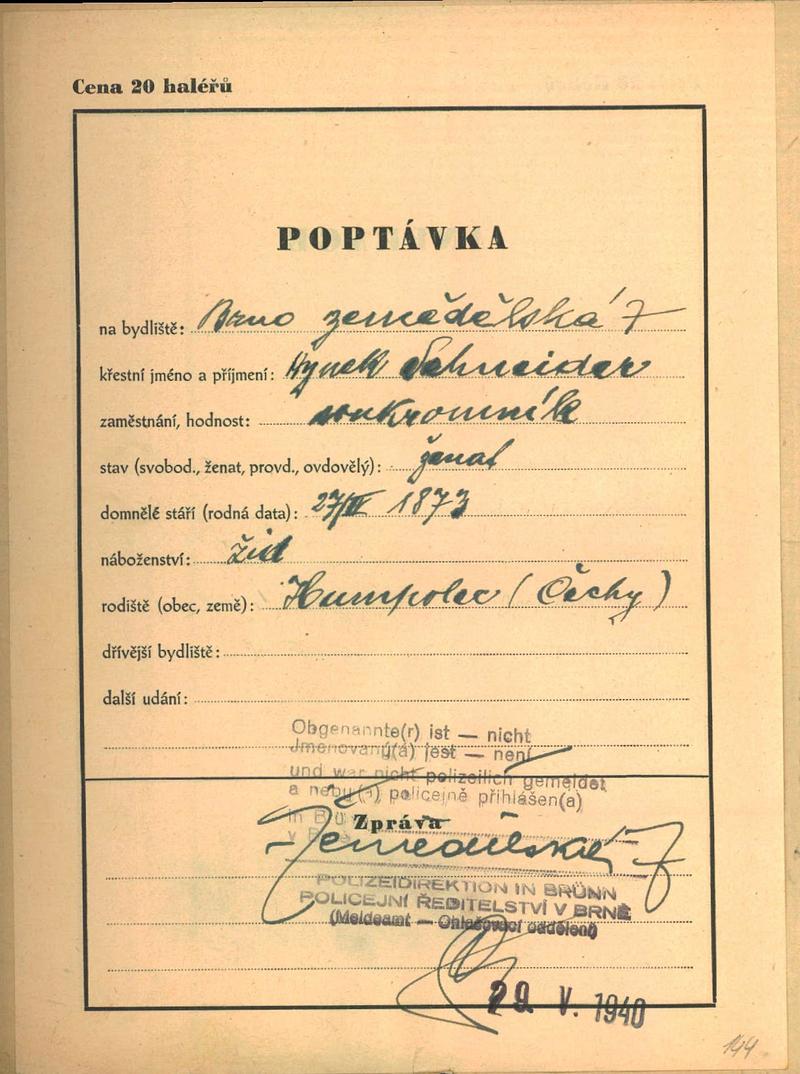 Cena 20 haléřů
POPTÁVKA
na bydliště: Brno zemědělská 7
křestní jméno a příjmení: Hynek Schneider
zaměstnání, hodnost: soukromník
stav (svobod., ženat, provd., ovdovělý): ženat
domnělé stáří (rodná data): 1873
náboženství: žid
rodiště (obec, země): Humpolec (Čechy)
dřívější bydliště:
další udání:
Obgenannte(r) ist — nicht
Jmenovaný(á) jest — není
und war nicht polizeilich gemeldet
a nebyl(a) policejně přihlášen(a)
in Brü
v B
Zpráva
Zemědělská 7
POLIZEIDIREKTION IN BRÜNN
POLICEJNÍ ŘEDITELSTVÍ V BRNĚ
(Meldeamt — Ohlašovací oddělení)
29. V. 1940
144